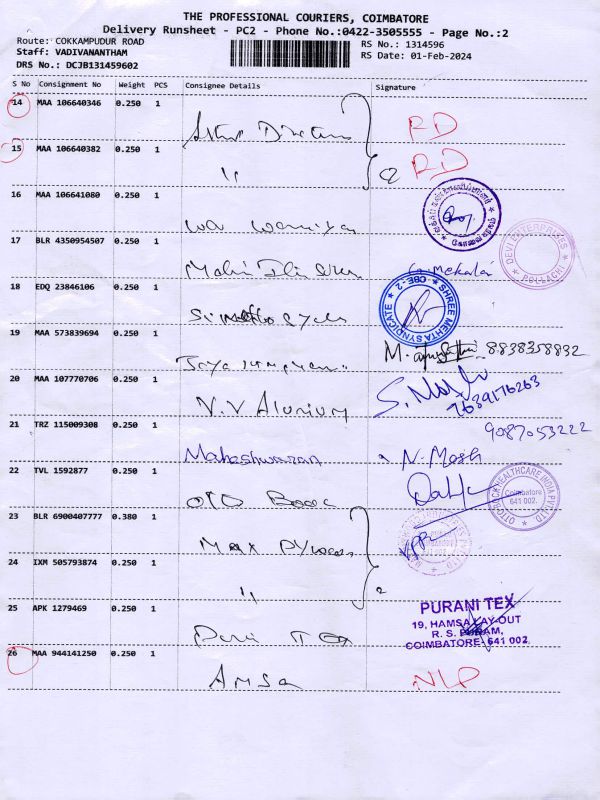 THE PROFESSIONAL COURIERS, COIMBATORE
Delivery Runsheet - PC2 - Phone No.:0422-3505555 - Page No.:2
Route: COKKAMPUDUR ROAD
RS No.: 1314596
Staff: VADIVANANTHAM
RS Date: 01-Feb-2024
DRS No.: DCJB131459602
S No Consignment No Weight PCS Consignee Details Signature
14 MAA 106640346 0.250 1
RD
15 MAA 106640382 0.250 1
" 2 RD
16 MAA 106641080 0.250 1
17 BLR 4350954507 0.250 1
DEVI ENTERPRISES
POLLACHI
G. Mekala
18 EDQ 23846106 0.250 1
SHREE MEHTA SYNDICATE
CBE-2
19 MAA 573839694 0.250 1
M. 8838358832
20 MAA 107770706 0.250 1
V.V Alunium
7639176263
21 TRZ 115009308 0.250 1
9087053222
Maheshwaran N. Mosh
22 TVL 1592877 0.250 1
OTTO BOCK HEALTHCARE INDIA PVT LTD
Coimbatore
641 002.
OTO Bock
23 BLR 6900407777 0.380 1
Max
24 IXM 505793874 0.250 1
" 2
25 APK 1279469 0.250 1
PURANI TEX
19, HAMSA LAY-OUT
R. S. PURAM,
COIMBATORE- 641 002
Tex
26 MAA 944141250 0.250 1
Amsa NLP